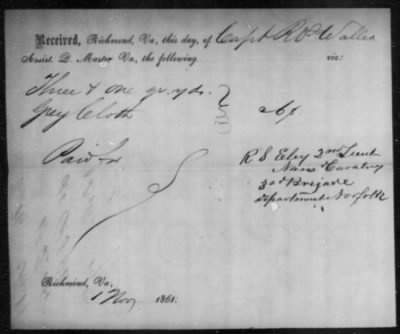 Received, Richmond, Va, this day, of Capt Ro. Waller
Assist. Q. Master Va, the following viz:
Three & one qr. yds.
Grey Cloth
Paid for
R S Eley 2nd Lieut
Cavalry
3rd Brigade
Department Norfolk
Richmond, Va,
1 Nov 1861.